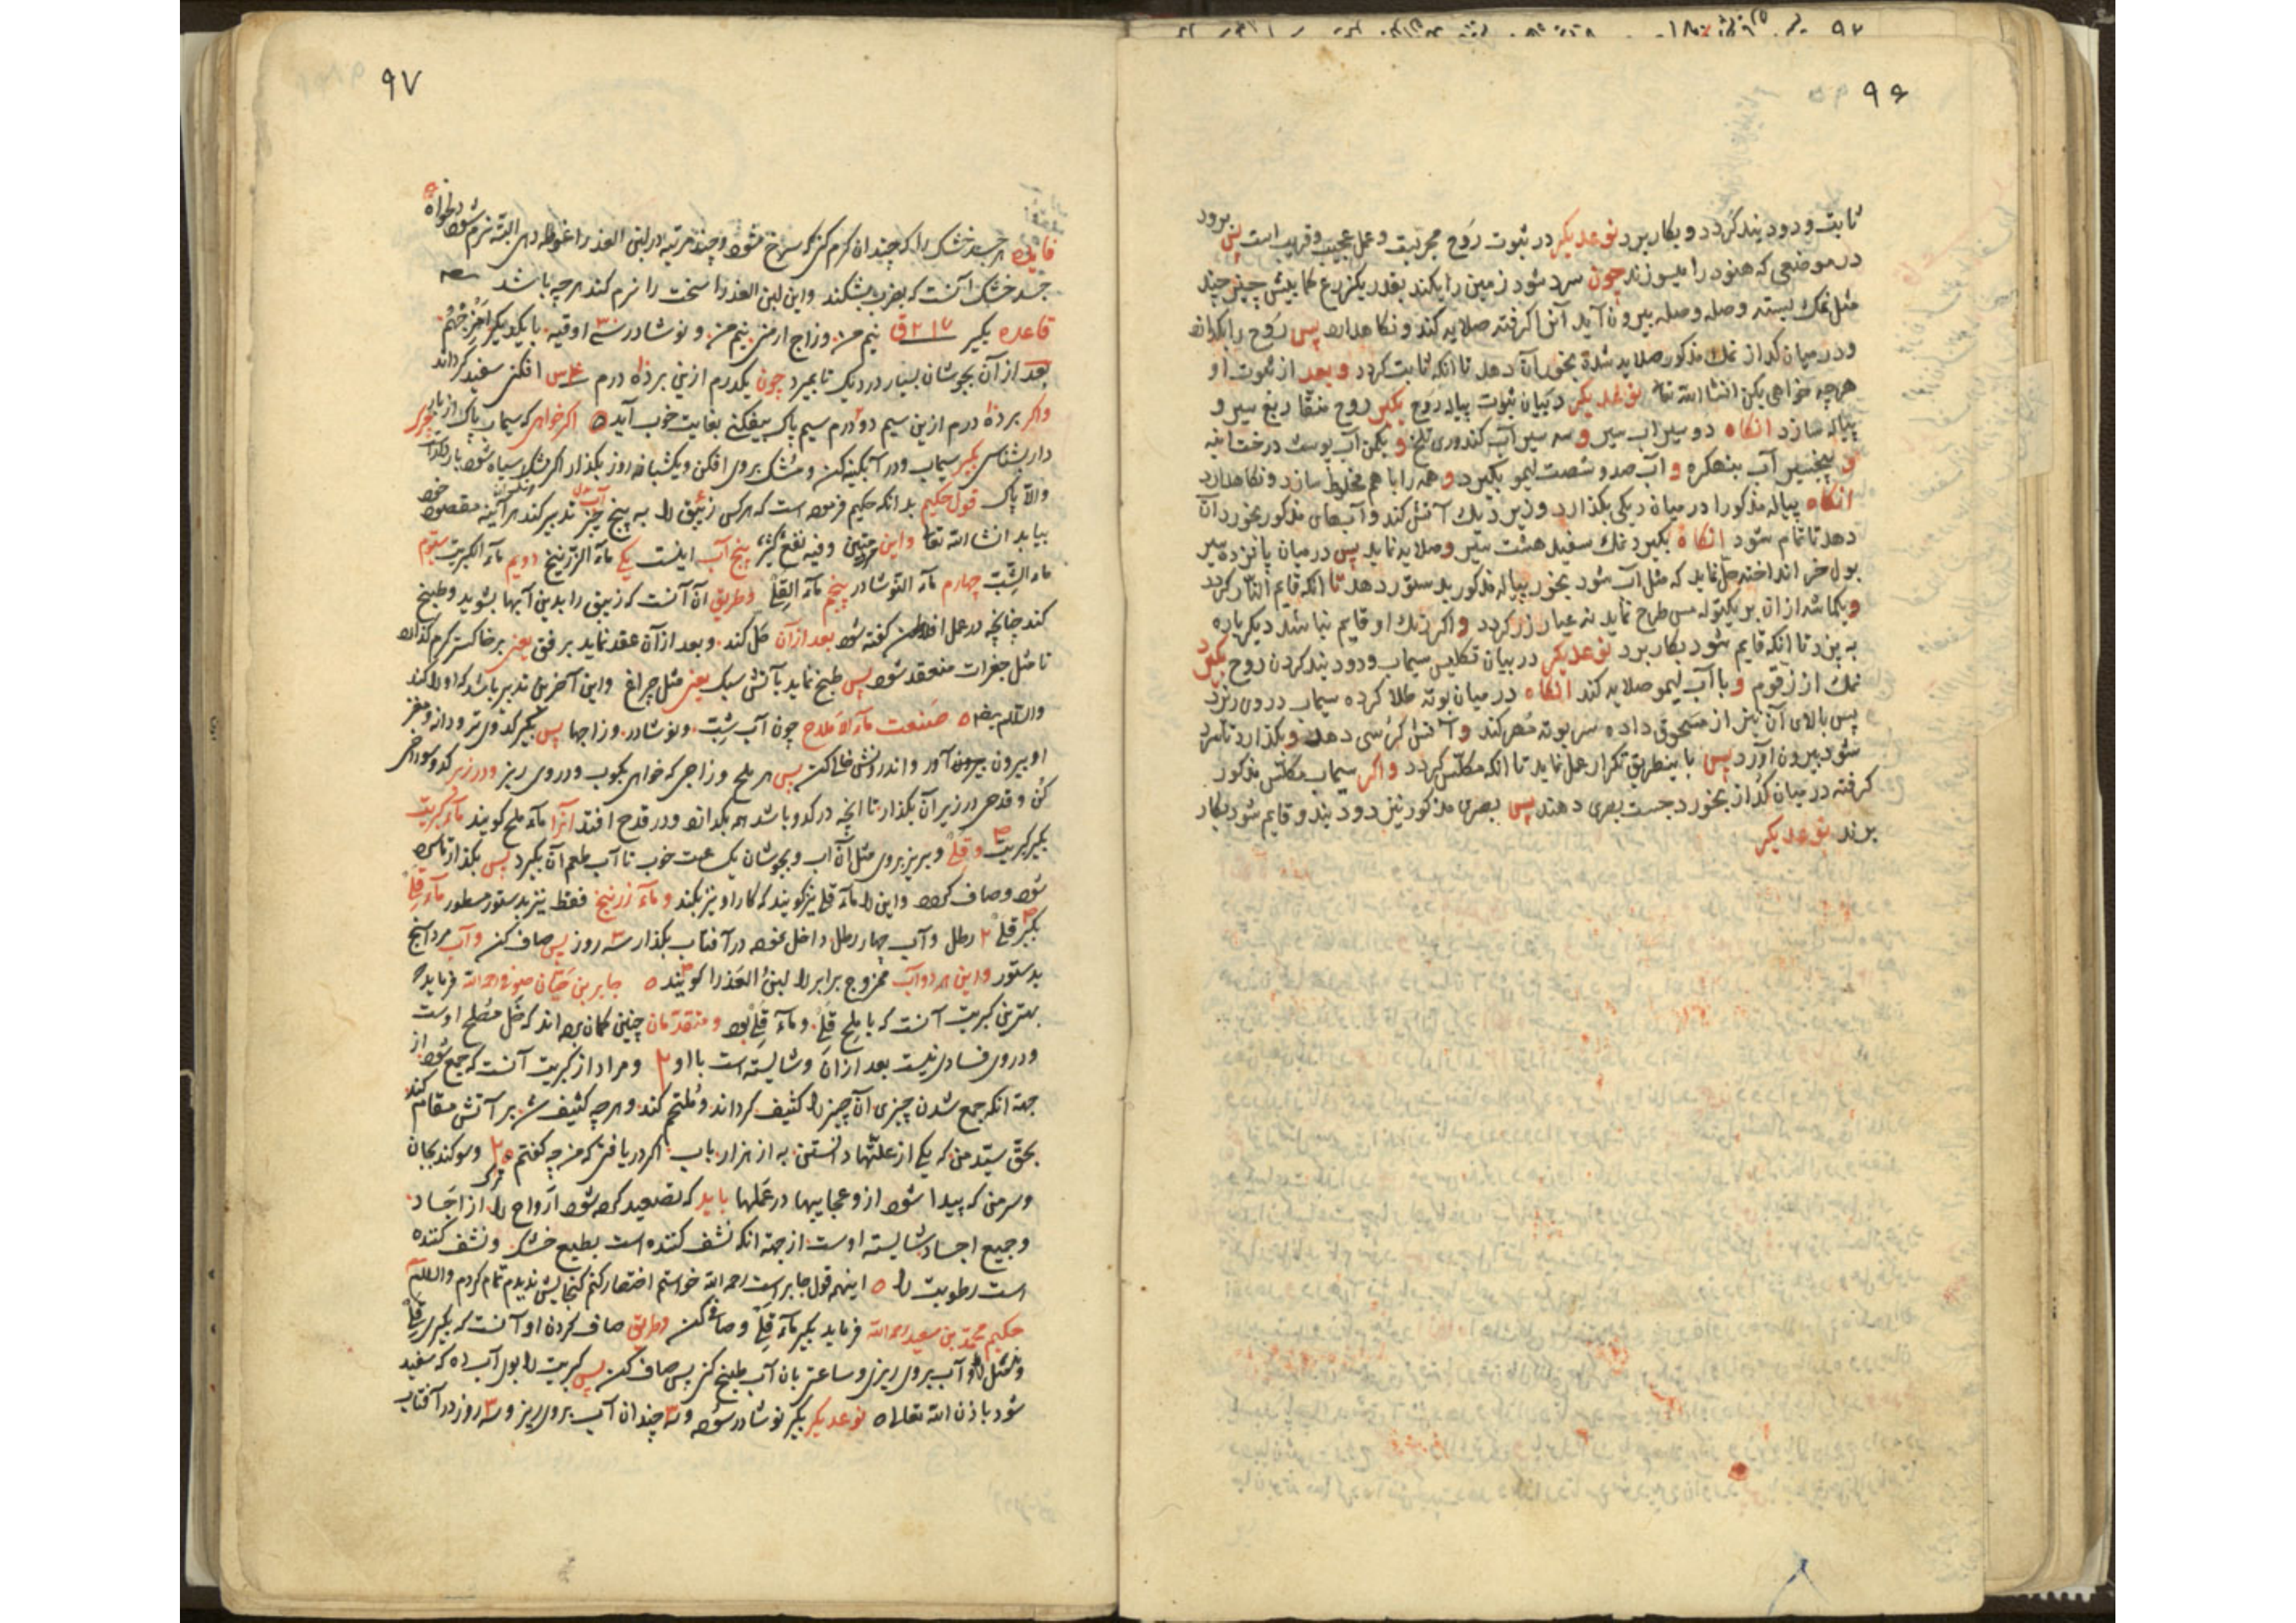 ۹۶
ثابت و دود بند کردد و بکار برد نوعدیکر در ثبوت روح مجربست و عمل عجیب و قریب است پس برود
در موضعی که هنود را میسوزند چون سرد شود زمین را بکند بقدر یکنزع کما بیش چیز چند
مثل نمک بسته وصله وصله بیرون آید آنرا کرفته صلایه کند و نکاهدارد پس روح را بکدازد
و در میان کداز نمک مذکور صلایه شده بخور آن دهد تا انکه ثابت کردد و بعد از ثبوت او
هرچه خواهی بکن انشاالله تعا نوعدیکر در بیان ثبوت پیاله روح بکیر روح منقا ربع سیر و
پیاله سازد انکاه دو سیر آب سیر و سه سیر آب کندوری تلخ و بکیر آب پوست درخت انبه
و پنجسیر آب بنهکره و آب صد و شصت لیمو بکیرد و همه را با هم مخلوط سازد و نکاهدارد
انکاه پیاله مذکور را در میان دیکی بکذارد و زیر دیک آتش کند و آبهای مذکور بخورد آن
دهد تا تمام شود انکاه بکیرد نمک سفید هشت سیر و صلایه نماید پس در میان پانزده سیر
بول خر انداخته حل نماید که مثل آب شود بخور پیاله مذکور بدستور دهد تا انکه قایم النار کردد
و یکماشه از ان بر یکتوله مس طرح نماید نه عیار زر کردد و اکر رنک او قایم نباشد دیکرباره
به پزد تا انکه قایم شود بکار برد نوعدیکر در بیان تکلیس سیماب و دود بند کردن روح بکیرد
نمک از زقوم و با آب لیمو صلایه کند انکاه در میان بوته طلا کرده سیماب در وی ریزد
پس بالای آن نیز از مسحوق داده سر بوته مهر کند و آتش کرسی دهد و بکذارد تا سرد
شود بیرون آورد پس باینطریق تکرار عمل نماید تا انکه مکلس کردد و اکر سیماب مکلس مذکور
کرفته در میان کداز بخورد جست بصری دهند پس بصری مذکور نیز دود بند و قایم شود بکار
برند نوعدیکر
۹۷
فایده هر جسد خشک را که چندان کرم کنی که سرخ شود و چند مرتبه در لبن العذرا غوطه دهی البته نرم شود
جسد خشک آنست که بضرب بشکند و این لبن العذرا سخت را نرم کند هرچه باشد
قاعده بکیر نیم من و زاج ارمنی نیم من و نوشادر سه اوقیه با یکدیکر
بعد از آن بجوشان بسیار در دیک تا بمیرد چون یکدرم ازین بر ده درم افکنی سفید کرداند
واکر بر ده درم ازین سیم دو درم سیم پاک بیفکنی بغایت خوب آید اکر خواهی که سیماب پاک از
دار بشناسی بکیر سیماب و در آبکینه کن و مشک بروی افکن و یکشبانه روز بکذار اکر مشک سیاه شود
والا پاک قول حکیم بدانکه حکیم فرموده است که هر کس زیبق را به پنج چیز تدبیر کند هر آینه مقصود خود
بیابد انشاالله تعا و این وفیه نفع کثیر پنج آب اینست یکی ماء الزرنیخ دویم ماء الکبریت سیوم
ماء الشب چهارم ماء النوشادر پنجم ماء القلی و طریق آن آنست که زیبق را بدین آبها بشوید و طبخ
کند چنانچه در عمل افلاطون کفته شود بعد ازآن حل کند و بعد ازآن عقد نماید برفق یعنی برخاکستر کرم کذارد
تا مثل جغرات منعقد شود پس طبخ نماید باآتش سبک یعنی مثل چراغ و این آخرین تدبیر باشد که اورا کند
والسلام صنعت ماء الاملاح چون آب شب و نوشادر و زاجها پس بکیر کدوی تر و دانه و مغز
او بیرون آور و اندرونش خالی کن پس هر ملح و زاجی که خواهی بکوب و در وی ریز و در زیر کدو سوراخی
کن و قدحی در زیر آن بکذار تا انچه در کدو باشد همه بکدازد و در قدح افتد آنرا ماء ملح کویند ماء کبریت
بکیر کبریت و قلی و بریز بروی مثل آن آب و بجوشان یکساعت خوب تا آب طعم آن بکیرد پس بکذار تا سرد
شود و صاف کردد و این را ماء قلی نیز کویند که کار او نیز بکند و ماء زرنیخ فقط نیز بدستور مسطور ماء قلی
بکیر قلی ۲ رطل و آب چهار رطل داخل نموده در آفتاب بکذار سه روز پس صاف کن و آب مرداسنج
بدستور و این هر دو آب ممزوج برابر را لبن العذرا کویند جابر بن حیان صوفی رحمه الله فرماید
بهترین کبریت آنست که با ملح قلی و ماء قلی بود و متقدمان چنین کمان برده اند که خل مصلح اوست
و در وی فساد نیست بعد ازان وشایسته است با او و مراد از کبریت آنست که جمع شود از
جهة انکه جمع شدن چیزی آن چیز را کثیف کرداند و ملتحم کند و هرچه کثیف شد بر آتش مقام کند
بحق سید من که یکی از علتها دانستن به از هزار باب اکر دریافتی که من چه کفتم وسوکند بجان
و سر من که پیدا شود ازو عجایبها در عملها باید که تصعید کرده شود ارواح را از اجساد
و جمیع اجساد شایسته اوست از جهة انکه نشف کننده است بطبع خشک و نشف کننده
است رطوبت را اینهمه قول جابر است رحمه الله خواستم اختصار کنم کنجایش ندیدم تمام کردم والسلام
حکیم محمد بن سعید رحمه الله فرماید بکیر ماء قلی و صافی کن و طریق صاف کردن او آنست که بکیری قلی
آب بروی ریزی و ساعتی بان آب طبخ کنی پس صاف کن پس کبریت را بول آب ده که سفید
شود باذن الله تعالی نوعدیکر بکیر نوشادر سوده و سه چندان آب بروی ریز و سه روز در آفتاب